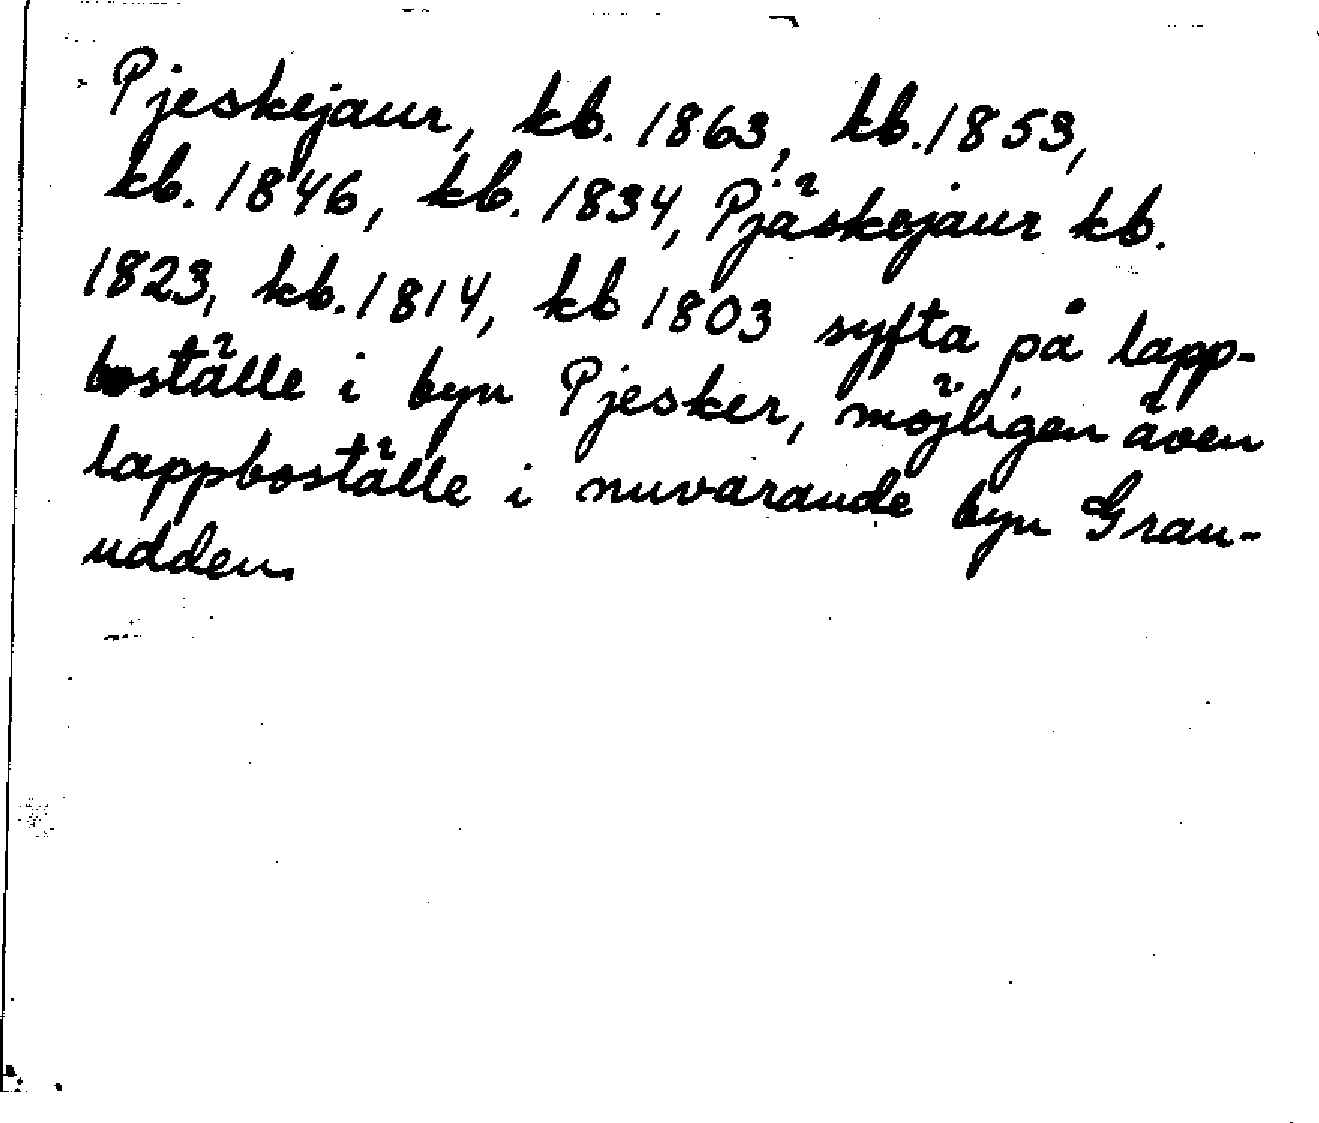 Pjeskejaur, kb. 1863, kb. 1853,
kb. 1846, kb. 1834, Pjäskejaur kb.
1823, kb. 1814, kb 1803 syfta på lapp-
boställe i byn Pjesker, möjligen även
lappboställe i nuvarande byn Gran-
udden.